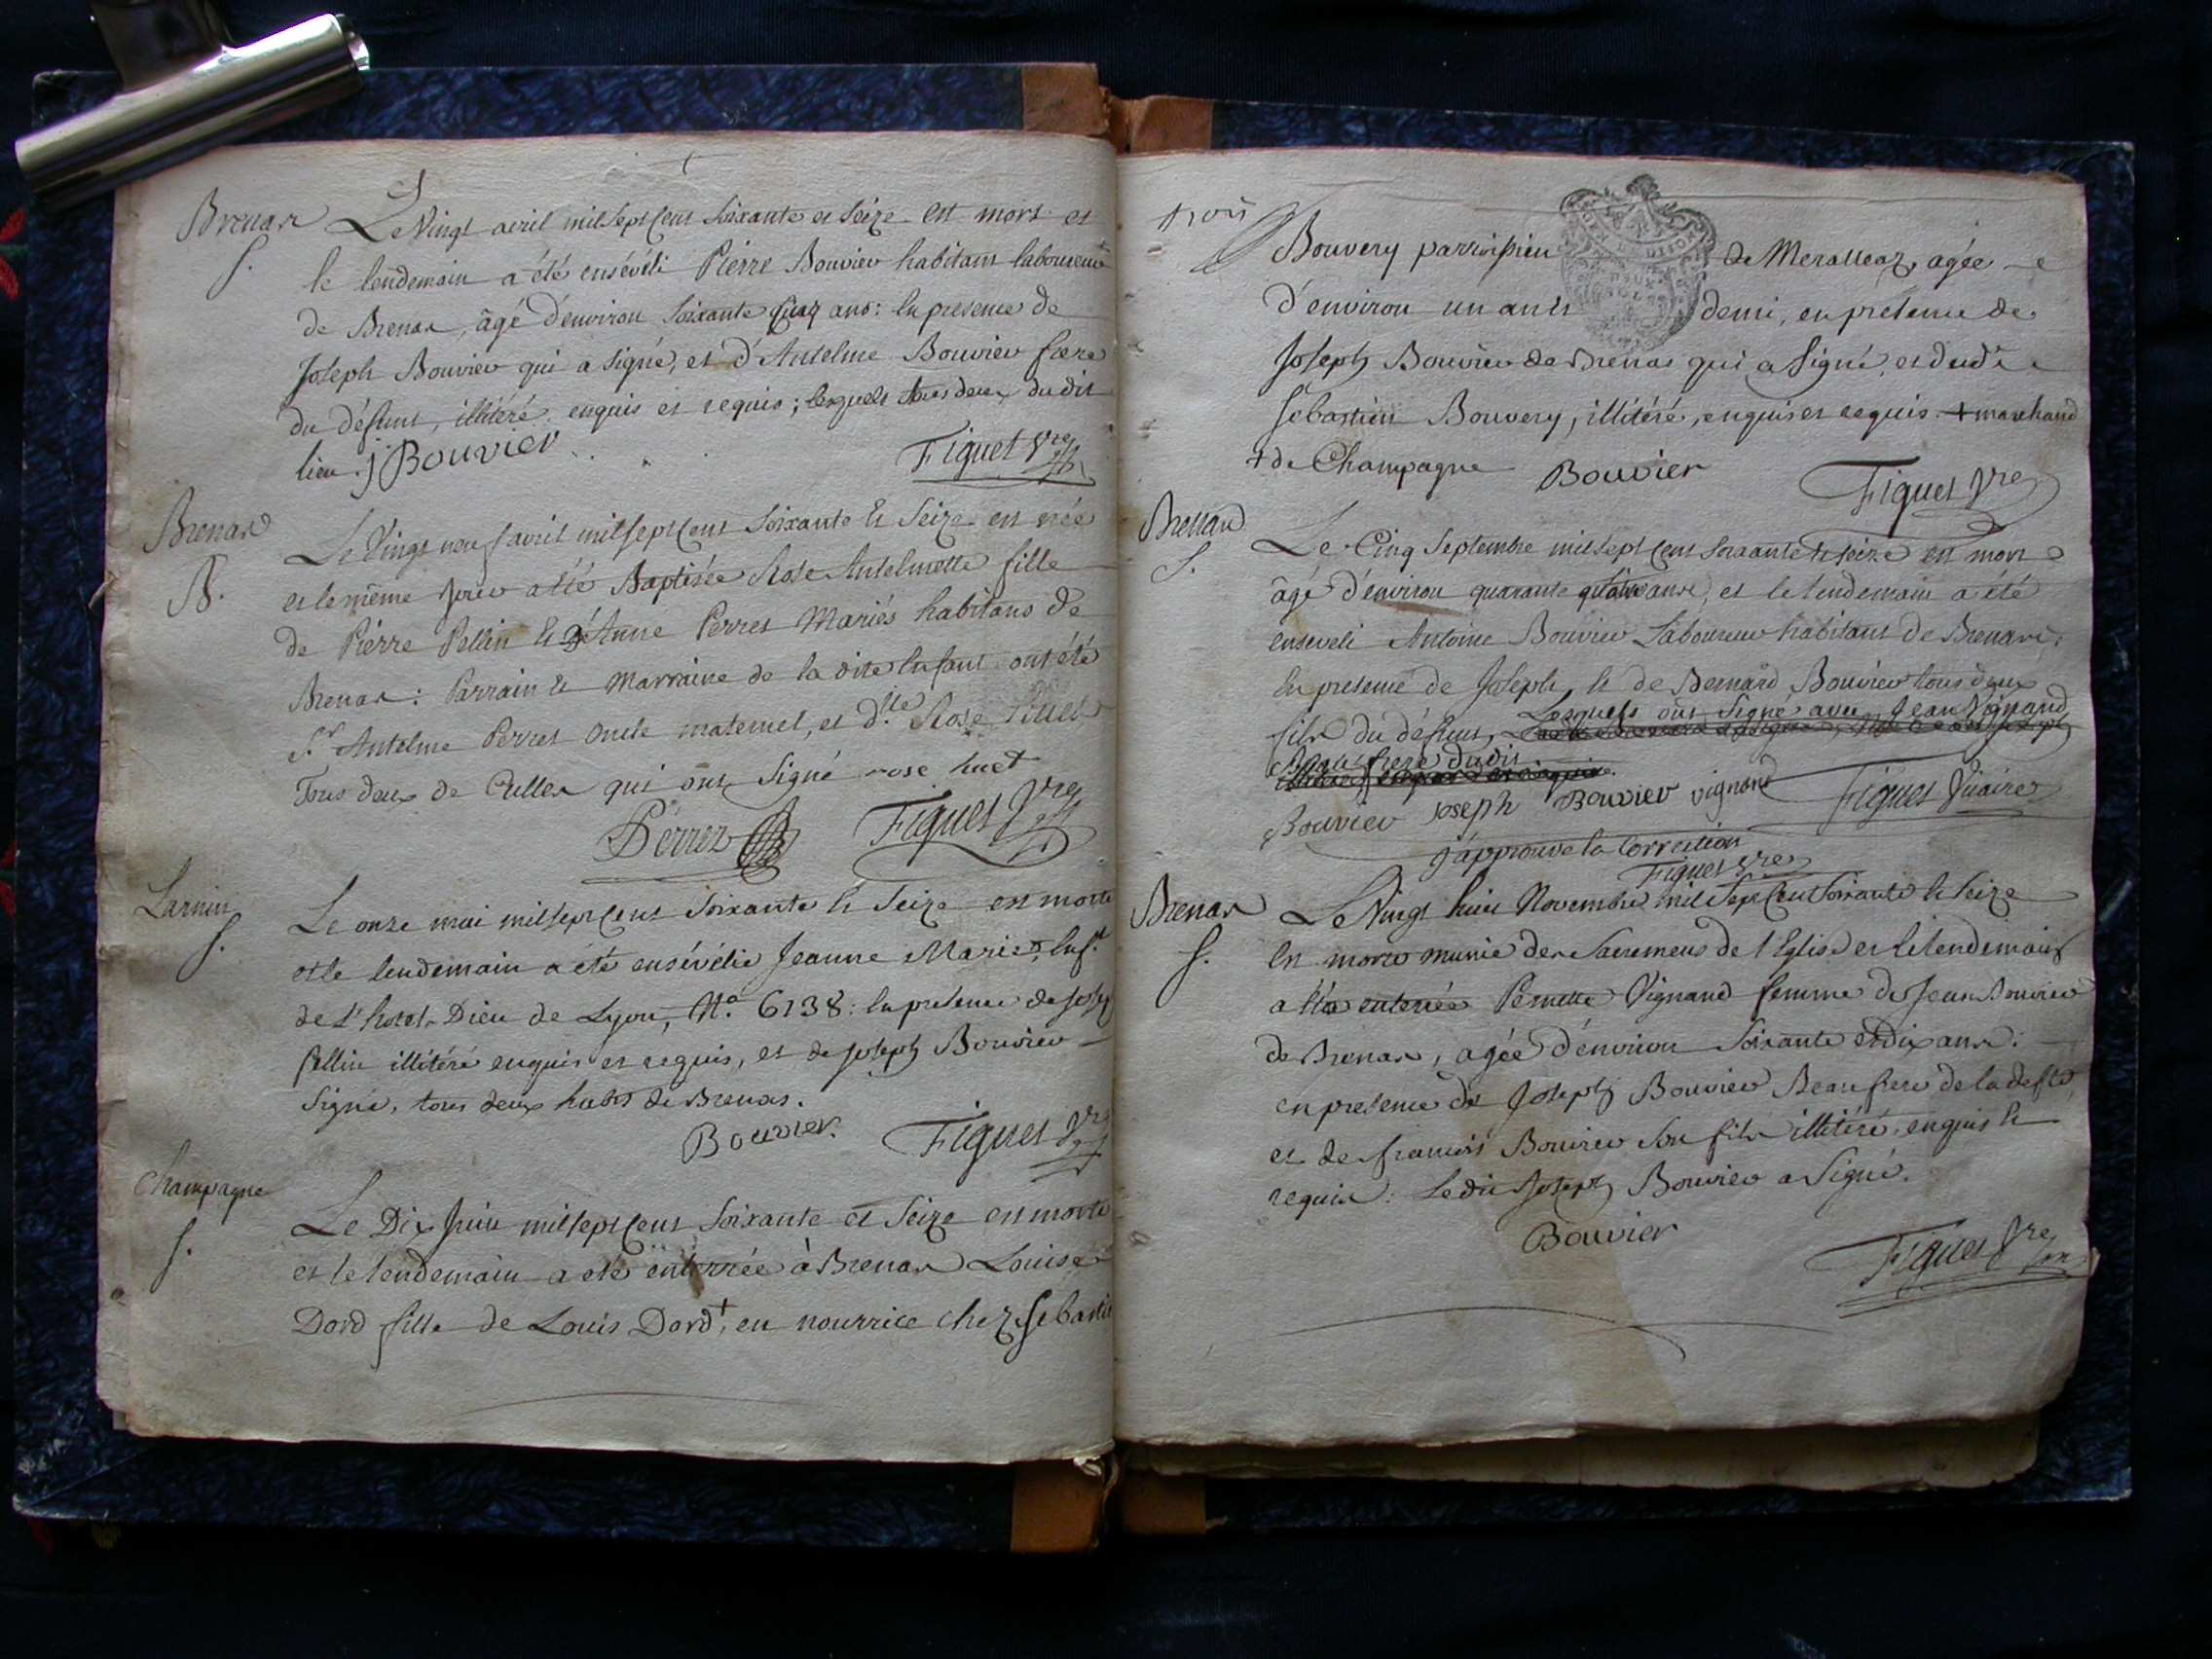 Brenas
S.
Le Vingt avril mil sept cent soixante et seize est mort et
le lendemain a été ensévéli Pierre Bouvier habitant laboureur
de Brenas, âgé d'environ soixante cinq ans: en presence de
Joseph Bouvier qui a signé, et d'Antelme Bouvier frere
du défunt, illitéré, enquis et requis; lesquels tous deux du dit
lieu. j Bouvier
Figuet Vre
Brenas
B.
Le Vingt neuf avril mil sept cent soixante et seize est née
et le même jour a été Baptisée Rose Antelmette fille
de Pierre Pellin et d'Anne Perret Mariés habitans de
Brenas: Parrain et Marraine de la dite enfant ont été
Sr Antelme Perret oncle maternel, et dlle Rose
Tous deux de Cullea qui ont signé rose huet
Perret
Figuet Vre
S.
Le onze mai mil sept cent soixante et seize est morte
et le lendemain a été ensévélie Jeanne Marie, enft
de l'hotel-Dieu de Lyon, No. 6138: en presence de Joseph
Pellin illitéré enquis et requis, et de Joseph Bouvier
signé, tous deux habts de Brenas.
Bouvier.
Figuet Vre
Champagne
S.
Le Dix Juin mil sept cent soixante et seize est morte
et le lendemain a été enterrée à Brenas Louise
Dord fille de Louis Dord +, en nourrice chez Sebastien
trois
Bouvery parroissien de agée
d'environ un an et demi, en presence de
Joseph Bouvier de Brenas qui a signé, et dudt
Sebastien Bouvery, illitéré, enquis et requis. + marchand
+ de Champagne
Bouvier
Figuet Vre
Brenas
S.
Le Cinq Septembre mil sept cent soixante et seize est mort
âgé d'environ quarante quatre ans, et le lendemain a été
enseveli Antoine Bouvier Laboureur habitant de Brenas:
en presence de Joseph, et de Bernard Bouvier tous deux
fils du défunt, Lesquels ont signé avec Jean Vignand
Beaufrere dudit
Bouvier joseph Bouvier vignand Figuet Vicaire
j'approuve la Correction
Figuet Vre
Brenas
S.
Le Vingt huit Novembre mil sept cent soixante et seize
est morte munie des Sacremens de l'Eglise et le lendemain
a été enterrée Pernette Vignand femme de Jean Bouvier
de Brenas, agée d'environ soixante et dix ans:
en presence de Joseph Bouvier Beaufrere de la defte
et de francois Bouvier son fils illitéré, enquis et
requis: Ledit Joseph Bouvier a signé.
Bouvier
Figuet Vre